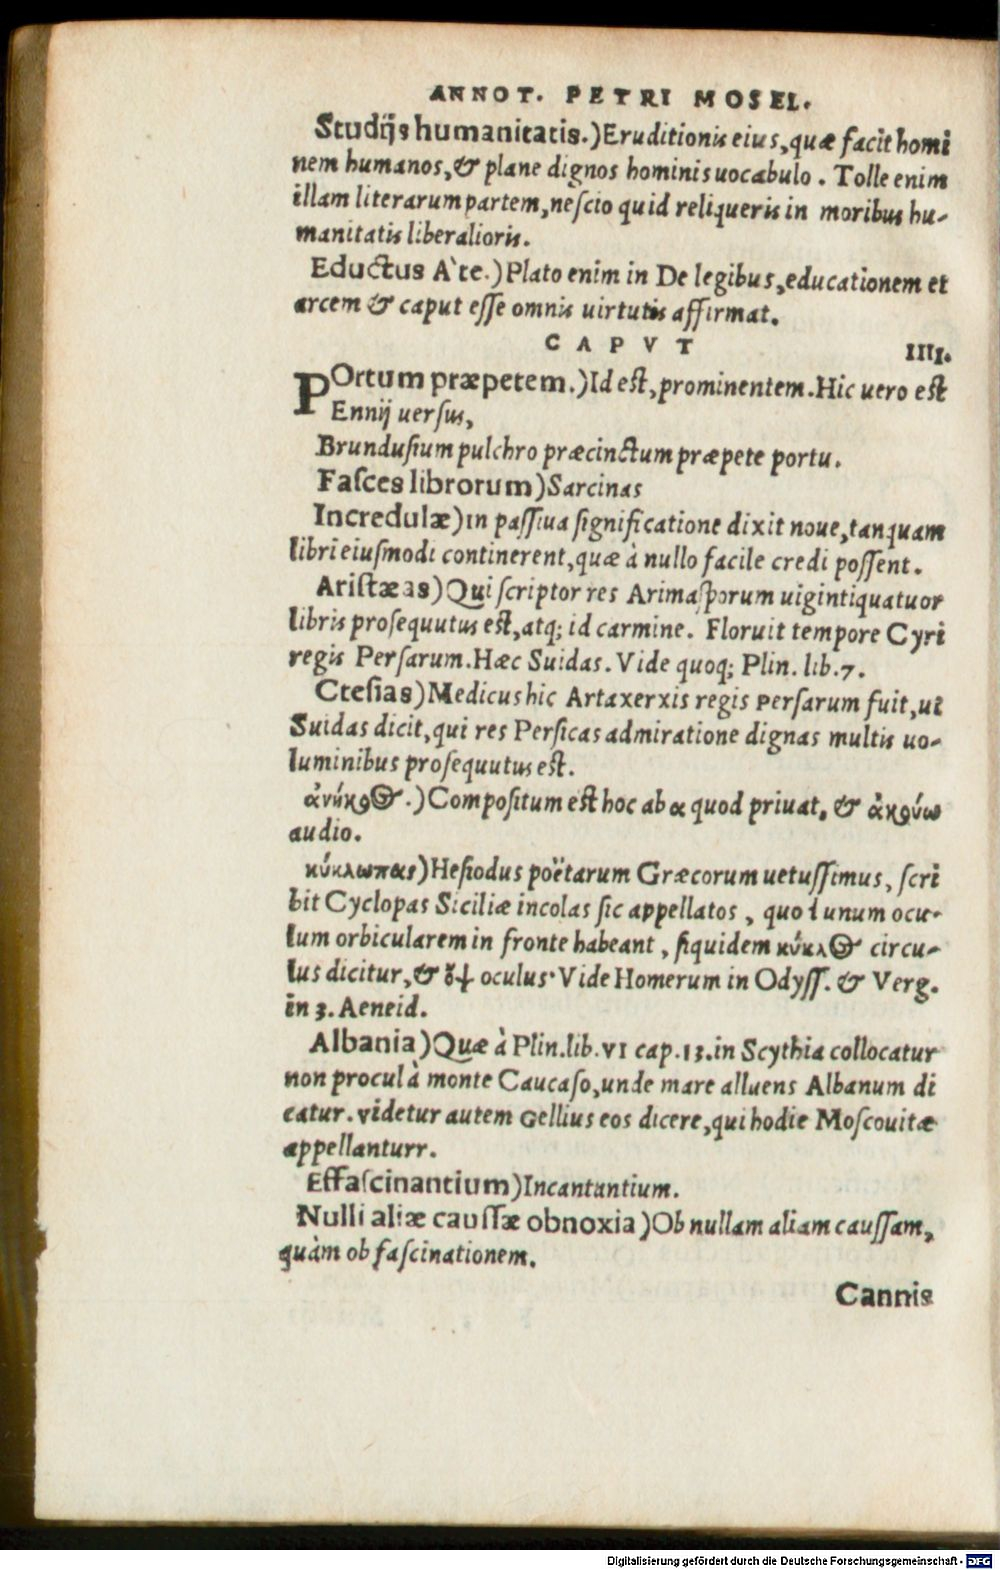 ANNOT. PETRI MOSEL.
Studijs humanitatis.) Eruditionis eius, quæ facit homi
nem humanos, & plane dignos hominis uocabulo. Tolle enim
illam literarum partem, nescio quid reliqueris in moribus hu-
manitatis liberalioris.
Eductus A`te.) Plato enim in De legibus, educationem et
arcem & caput esse omnis uirtutis affirmat.
CAPVT IIII.
POrtum præpetem.) Id est, prominentem. Hic uero est
Ennij uersus,
Brundusium pulchro præcinctum præpete portu.
Fasces librorum) Sarcinas
Incredulæ) in passiua significatione dixit noue, tanquam
libri eiusmodi continerent, quæ à nullo facile credi possent.
Aristæas) Qui scriptor res Arimasporum uigintiquatuor
libris prosequutus est, atq; id carmine. Floruit tempore Cyri
regis Persarum. Hæc Suidas. Vide quoq; Plin. lib. 7.
Ctesias) Medicus hic Artaxerxis regis Persarum fuit, ut
Suidas dicit, qui res Persicas admiratione dignas multis uo-
luminibus prosequutus est.
ἀνήκοος.) Compositum est hoc ab α quod priuat, & ἀκούω
audio.
κύκλωπας) Hesiodus poëtarum Græcorum uetussimus, scri
bit Cyclopas Siciliæ incolas sic appellatos, quod unum ocu-
lum orbicularem in fronte habeant, siquidem κύκλος circu-
lus dicitur, & ὄψ oculus. Vide Homerum in Odyss. & Verg.
in 3. Aeneid.
Albania) Quæ à Plin. lib. VI cap. 13. in Scythia collocatur
non procul à monte Caucaso, unde mare alluens Albanum di
catur. videtur autem Gellius eos dicere, qui hodie Moscouitæ
appellanturr.
Effascinantium) Incantantium.
Nulli aliæ caussæ obnoxia) Ob nullam aliam caussam,
quàm ob fascinationem.
Cannis
Digitalisierung gefördert durch die Deutsche Forschungsgemeinschaft - DFG